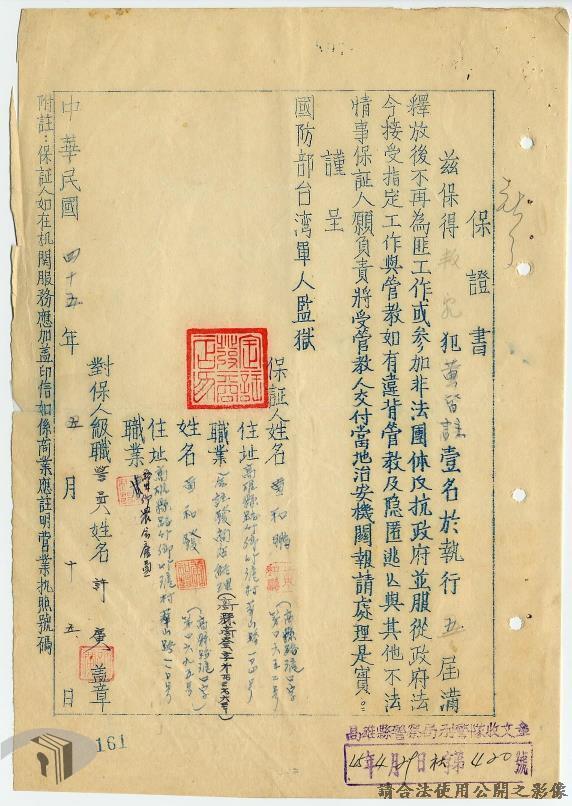 保證書
茲保得叛亂犯黃皆註壹名於執行五屆滿
釋放後不再為匪工作或參加非法團体反抗政府並服從政府法
令接受指定工作與管教如有違背管教及隐匿逃亡與其他不法
情事保証人願負責將受管教人交付當地治安機關報請處理是實。
謹呈
國防部台湾軍人監獄
保証人姓名 黃和
住址 高雄縣路竹鄉 村華山路 號
職業 金註發商店經理
姓名 黃和發
住址 高雄縣路竹鄉 村華山路一 號
職業
對保人級職警員姓名許廣蓋章
中華民國四十五年五月十五日
附註:保証人如在机関服務應加蓋印信如係商業應註明营業执照號碼
161
高雄縣警察局刑警隊收文章
45年4月 日 字第420號
請合法使用公開之影像